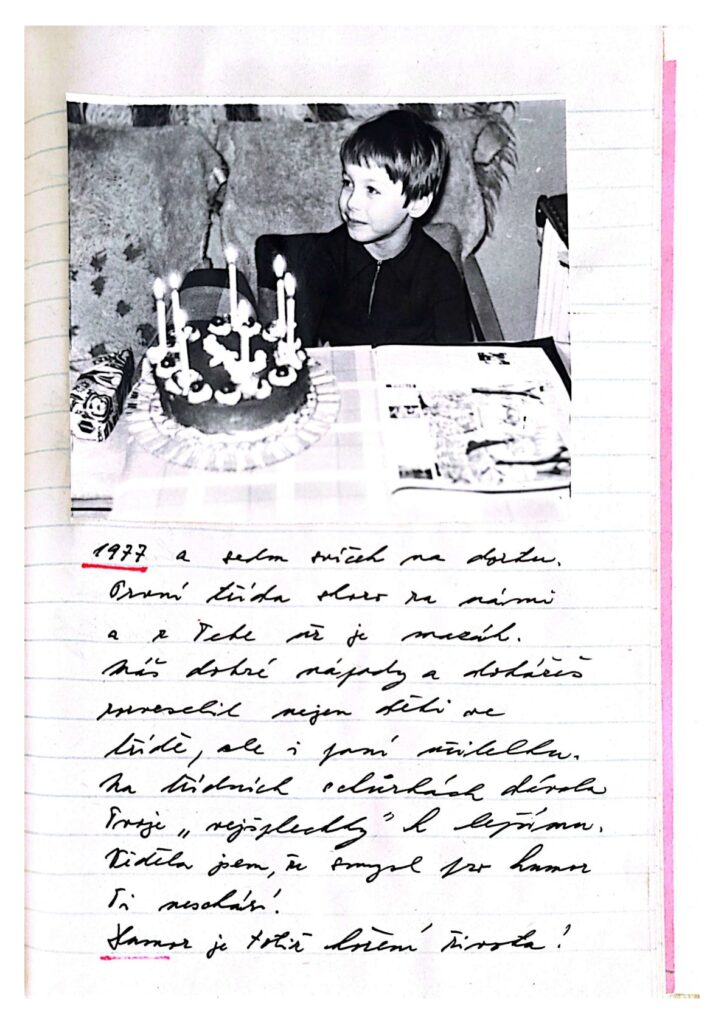 1977 a sedm svíček na dortu.
První třída skoro za námi
a z Tebe už je mazák.
Máš dobré nápady a dokážeš
rozveselit nejen děti ve
třídě, ale i paní učitelku.
Na třídních schůzkách dávala
Tvoje „nejšplechty" k lepšímu.
Viděla jsem, že smysl pro humor
Ti neschází!
Humor je totiž koření života!